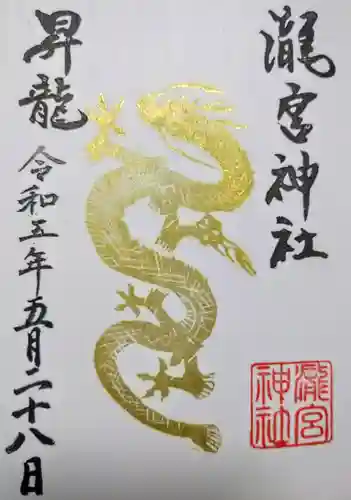 瀧宮神社
昇龍
令和五年五月二十八日
瀧宮
神社